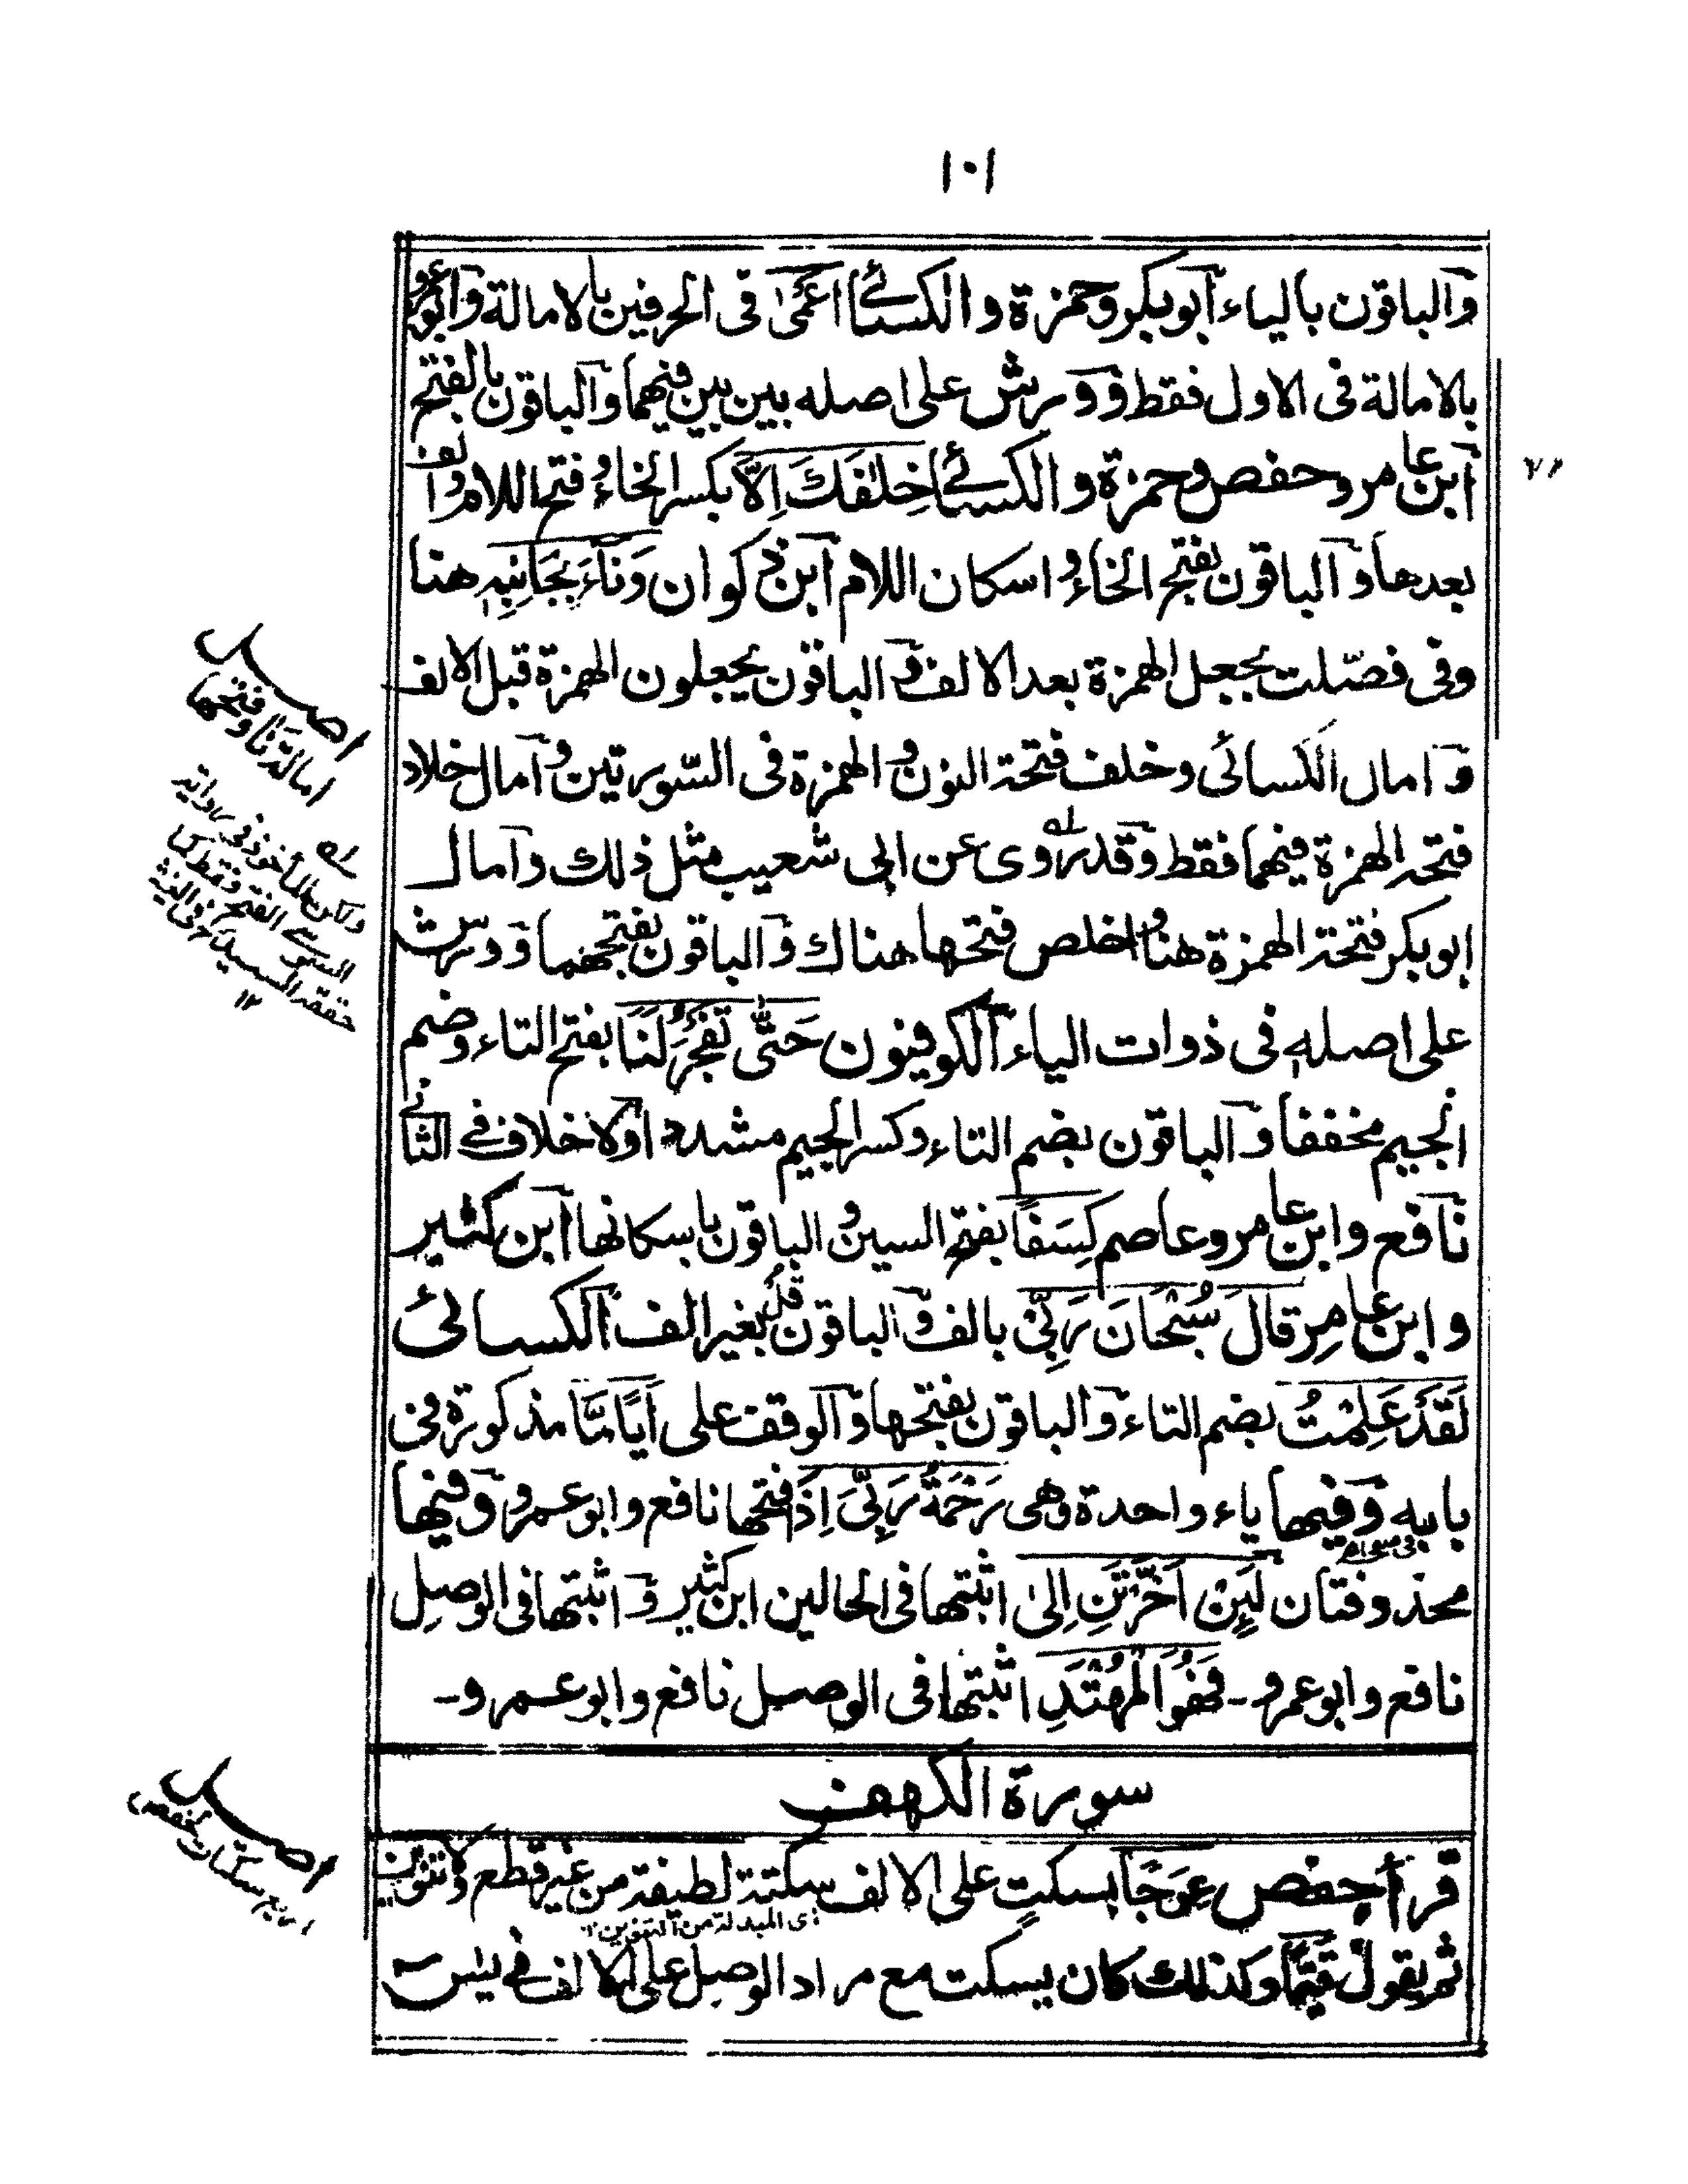 ١٠١
والباقون بالياء ابوبكر وحمزة والكسائے اعمىٰ فى الحرفين بالامالة وابوعمرو
بالامالة فى الاول فقط وورش على اصله بين بين فيهما والباقون بالفتح
ابن عامر وحفص وحمزة والكسائے خِلٰفَكَ اِلَّا بكسر الخاء وفتح اللام والف
بعدها والباقون بفتح الخاء واسكان اللام ابن ذكوان وَنَآءَ بِجَانِبِهٖ هنا
وفى فصّلت يجعل الهمزة بعد الالف والباقون يجعلون الهمزة قبل الالف
وامال الكسائى وخلف فتحة النون والهمزة فى السّورتين وامال خلاد
فتحة الهمزة فيهما فقط وقد روى عن ابى شعيب مثل ذلك وامال
ابوبكر فتحة الهمزة هنا واخلص فتحها هناك والباقون بفتحهما وورش
على اصله فى ذوات الياء الكوفيون حَتّٰى تَفْجُرَ لَنَا بفتح التاء وضم
الجيم مخففا والباقون بضم التاء وكسر الجيم مشددا ولا خلاف فے الثانے
نافع وابن عامر وعاصم كِسَفًا بفتح السين والباقون باسكانها ابن كثير
وابن عامر قَالَ سُبْحَانَ رَبِّىْ بالف والباقون قُلْ بغير الف الكسائى
لَقَدْ عَلِمْتُ بضم التاء والباقون بفتحها والوقف على اَيًّامَّا مذكورة فى
بابه وفيها ياء واحدة وهى رَحْمَةُ رَبِّىَ اِذًا فتحها نافع وابو عمرو وفيها
محذوفتان لَئِنْ اَخَّرْتَنِ اِلىٰ اثبتها فى الحالين ابن كثير واثبتها فى الوصل
نافع وابوعمرو - فَهُوَ الْمُهْتَدِ اثبتها فى الوصل نافع وابو عمرو -
سورة الكهف
قرأ حفص عِوَجًا بسكتٍ على الالف سكتة لطيفة من غير قطع ولا تنوين
اى المبدلة من التنوين ١٢
ثم يقول قَيِّمًا وكذلك كان يسكت مع مراد الوصل على الالف فے يٰس
٧٢
اصل
امالة نَا وفتحها
ولكن المأخوذ فى روايته
السوسے الفتح فقط كما
١٢
اصل
اربع سكتات لحفص